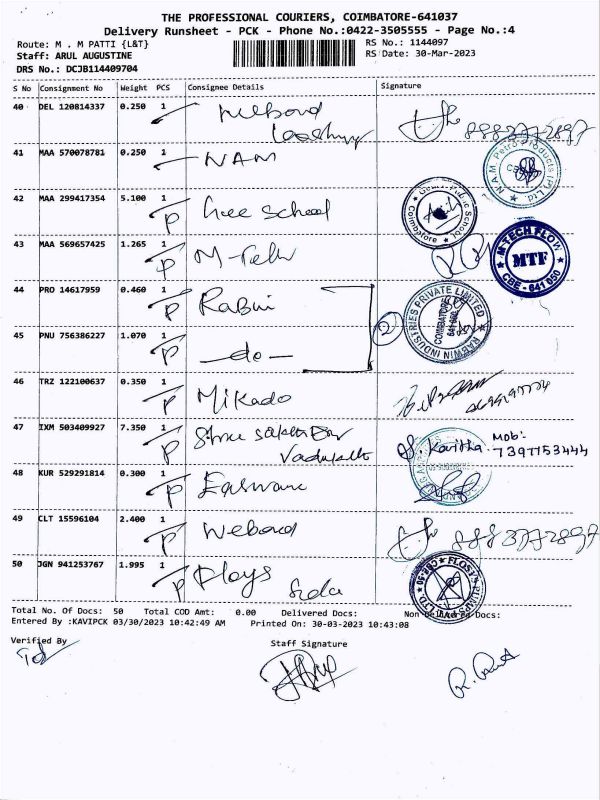 THE PROFESSIONAL COURIERS, COIMBATORE-641037
Delivery Runsheet - PCK - Phone No.:0422-3505555 - Page No.:4
Route: M . M PATTI {L&T} RS No.: 1144097
Staff: ARUL AUGUSTINE RS Date: 30-Mar-2023
DRS No.: DCJB114409704
S No Consignment No Weight PCS Consignee Details Signature
40 DEL 120814337 0.250 1
8883772897
41 MAA 570078781 0.250 1 NAM
N.A.M. Petro Products (P) Ltd.
42 MAA 299417354 5.100 1 P School
Public School Coimbatore
43 MAA 569657425 1.265 1 P M-Tech
M TECH FLOW MTF CBE - 641 050
44 PRO 14617959 0.460 1 P
INDUSTRIES PRIVATE LIMITED COIMBATORE 641 050
45 PNU 756386227 1.070 1 P —do—
46 TRZ 122100637 0.350 1 P Mikado
47 IXM 503409927 7.350 1 P Kavitha Mob:
7397753444
48 KUR 529291814 0.300 1 P
49 CLT 15596104 2.400 1 P 8883772897
50 JGN 941253767 1.995 1 P
Total No. Of Docs: 50 Total COD Amt: 0.00 Delivered Docs: Non-Delivered Docs:
Entered By :KAVIPCK 03/30/2023 10:42:49 AM Printed On: 30-03-2023 10:43:08
Verified By Staff Signature